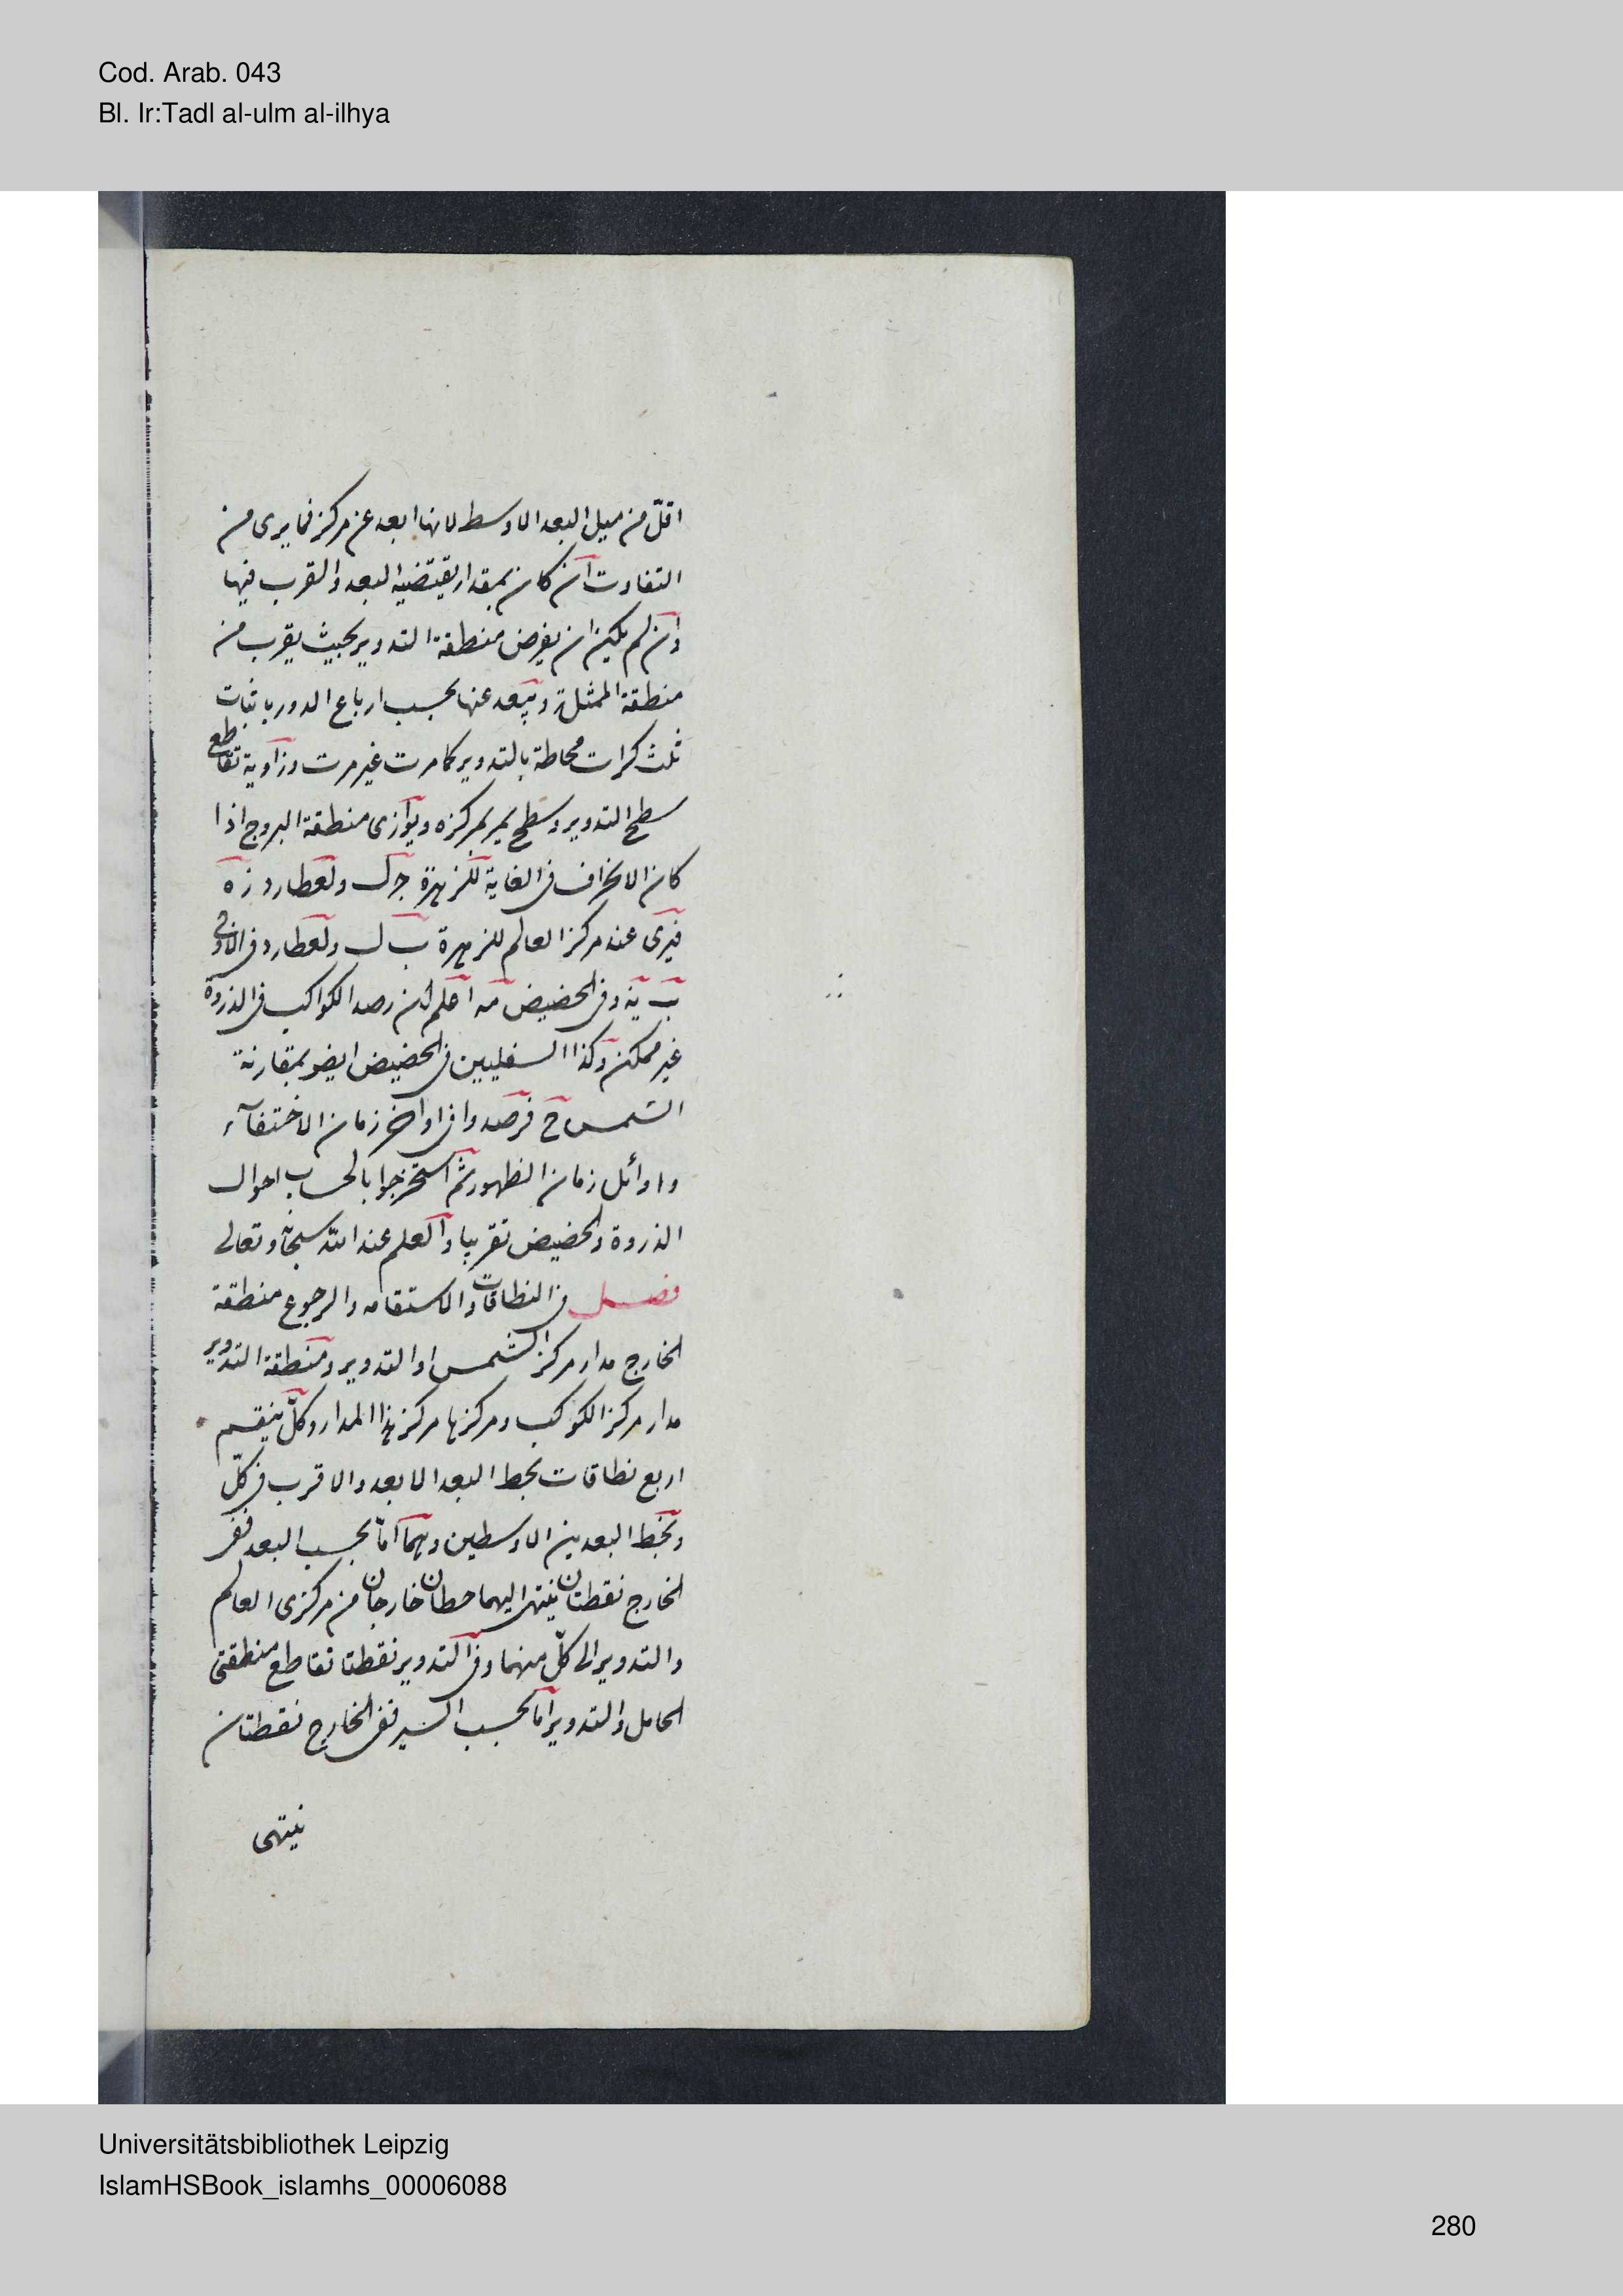 Cod. Arab. 043
Bl. Ir:Tadl al-ulm al-ilhya
اقلّ من ميل البعد الاوسط لانها ابعد عن مركز فما يرى من
التفاوت ان كان بمقدار يقتضيه البعد والقرب فيها
وان لم يكن ان يفرض منطقة التدوير بحيث يقرب من
منطقة الممثل ويبعد عنها بحسب ارباع الدور باثبات
ثلث كرات محاطة بالتدوير كما مرت غير مرت وزاوية تقاطع
سطح التدوير وسطح يمر بمركزه ويوازى منطقة البروج اذا
كان الانحراف فى الغاية للزهرة جرل ولعطارد زه
فيرى عند مركز العالم للزهرة ب ل ولعطارد فى الاوج
ب يه وفى الحضيض مه اعلم ان رصد الكواكب فى الذروة
غير ممكن وكذا السفليين فى الحضيض ايضو بمقارنة
الشمس ح فرصدوا فى اواخر زمان الاختفآء
واوائل زمان الظهور ثم استخرجوا بالحساب احوال
الذروة والحضيض تقريبا والعلم عند الله سبحانه وتعالى
فصل فى النطاقات والاستقامه والرجوع منطقة
الخارج مدار مركز الشمس او التدوير ومنطقة التدوير
مدار مركز الكوكب ومركزها مركز هذا المدار وكلّ ينقسم
اربع نطاقات بخط البعد الابعد والاقرب فى كلّ
وبخط البعدين الاوسطين وهما امّا بحسب البعد ففى
الخارج نقطتان ينتهى اليهما خطان خارجان من مركزى العالم
والتدوير الى كلّ منهما وفى التدوير نقطتا تقاطع منطقتى
الحامل والتدوير اما بحسب السير ففى الخارج نقطتان
ينتهى
Universitätsbibliothek Leipzig
IslamHSBook_islamhs_00006088
280